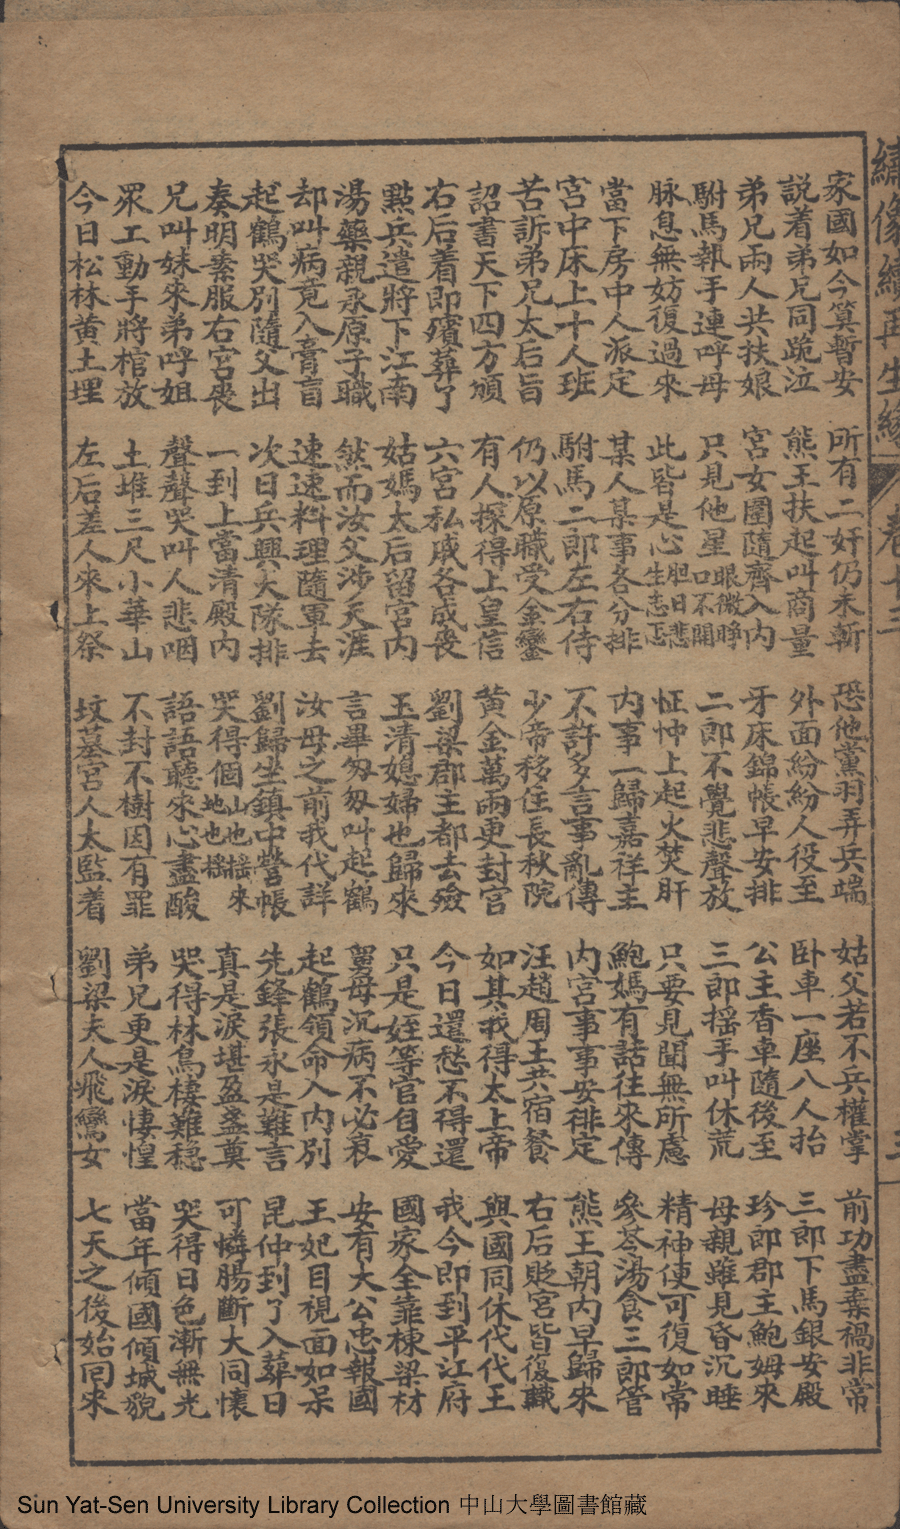 繡像續再生緣 卷十三 三
家國如今算暫安 所有二奸仍未斬 恐他黨羽弄兵端 姑父若不兵權掌 前功盡棄禍非常
説着弟兄同跪泣 熊王扶起叫商量 外面紛紛人役至 卧車一座八人抬 三郎下馬銀安殿
弟兄兩人共扶娘 宮女圍隨齊入內 牙床錦帳早安排 公主香車隨後至 珍郎郡主鮑姆來
駙馬執手連呼母 只見他星眼微睜口不開 二郎不覺悲聲放 三郎搖手叫休荒 母親雖見昏沉睡
脉息無妨復過來 此皆是心胆日悲生志忑 怔忡上起火焚肝 只要見聞無所慮 精神便可復如常
當下房中人派定 某人某事各分排 内事一歸嘉祥主 鮑媽有話往來傳 參苓湯食三郎管
宮中床上十人班 駙馬二郎左右侍 不許多言事亂傳 內宮事事安徘定 熊王朝内早歸來
苦訴弟兄太后旨 仍以原職受金鑾 少帝移住長秋院 汪趙周王共宿餐 右后貶宮皆復職
詔書天下四方頒 有人探得上皇信 黄金萬兩更封官 如其我得太上帝 與國同休代代王
右后着即殯葬了 六宮私戚各成喪 劉梁郡主都去殮 今日還愁不得還 我今即到平江府
點兵遣將下江南 姑媽太后留宮内 玉清媳婦也歸來 只是姪等官自愛 國家全靠棟梁材
湯藥親承原子職 然而汝父涉天涯 言畢匆匆叫起鶴 舅母沉病不必哀 安有大公忠報國
却叫病竟入膏肓 速速料理隨軍去 汝母之前我代詳 起鶴領命入内別 王妃目視面如呆
起鶴哭別隨父出 次日兵興大隊排 劉歸坐鎮中營帳 先鋒張永是難言 昆仲到了入葬日
奏明素服右宮喪 一到上當清殿内 哭得個山也搖來地也搖 真是淚堪盈盞奠 可憐腸斷大同懷
兄叫妹來弟呼姐 聲聲哭叫人悲咽 語語聽來心盡酸 哭得林鳥棲難稳 哭得日色漸無光
眾工動手將棺放 土堆三尺小華山 不封不樹因有罪 弟兄更是淚悽惶 當年傾國傾城貌
今日松林黄土埋 左后差人來上祭 坟墓宮人太監着 劉梁夫人飛鸞女 七天之後始囘來
Sun Yat-Sen University Library Collection 中山大學圖書館藏